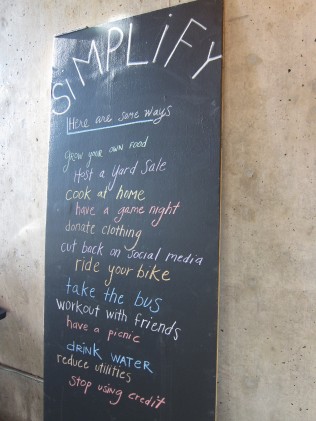 SiMPLiFY
Here are some ways
grow your own food
Host a Yard Sale
cook at home
have a game night
donate clothing
cut back on social media
ride your bike
take the bus
workout with friends
have a picnic
dRiNK WATER
reduce utilities
Stop using credit